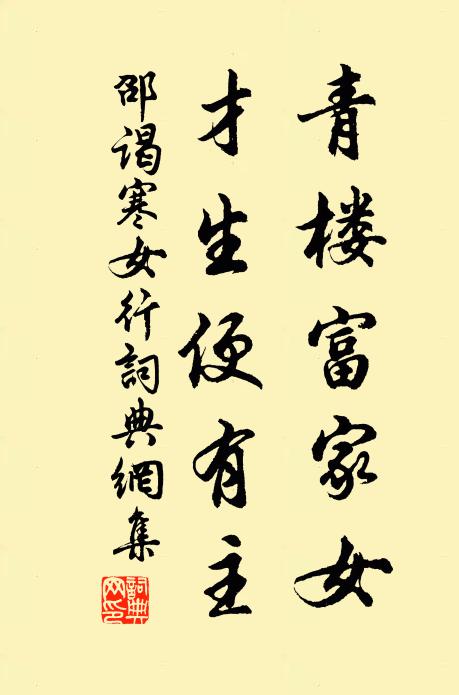 青楼富家女
才生便有主
邵谒寒女行詞典網集
詞典网印